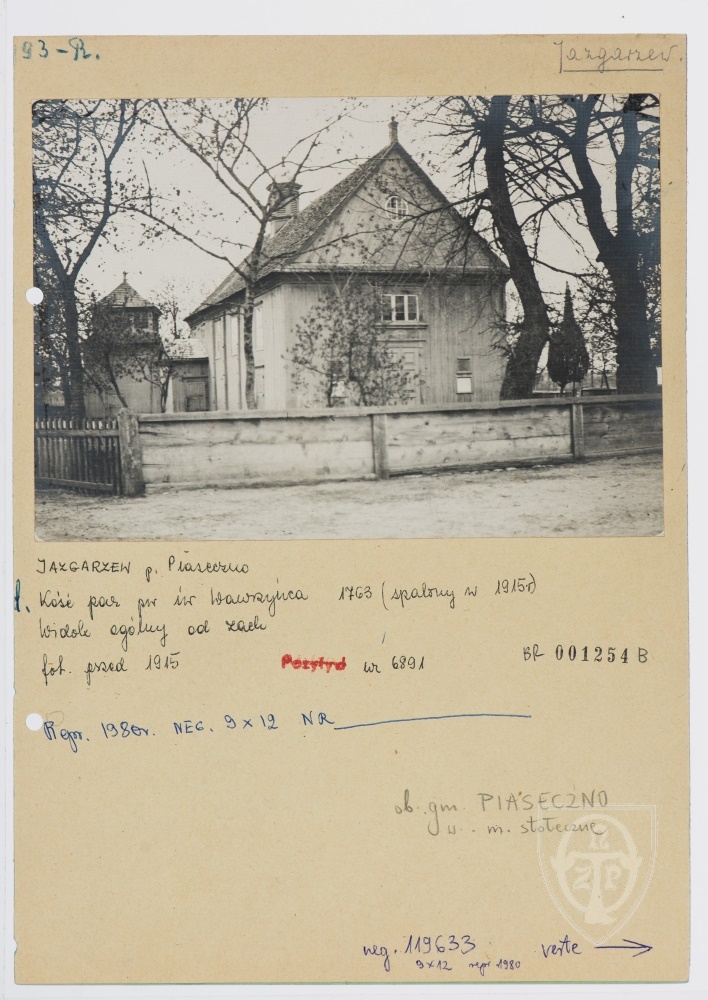 93-R.
Jazgarzew.
JAZGARZEW p. Piaseczno
1. Kość par pw św Wawrzyńca 1763 (spalony w 1915r)
Widok ogólny od zach
fot. przed 1915 Pozytyw nr 6891 BR 001254 B
Repr. 1980r. NEG. 9x12 NR
ob. gm. PIASECZNO
w. m. stołeczne
TNZP
neg. 119633 verte →
9x12 repr 1980